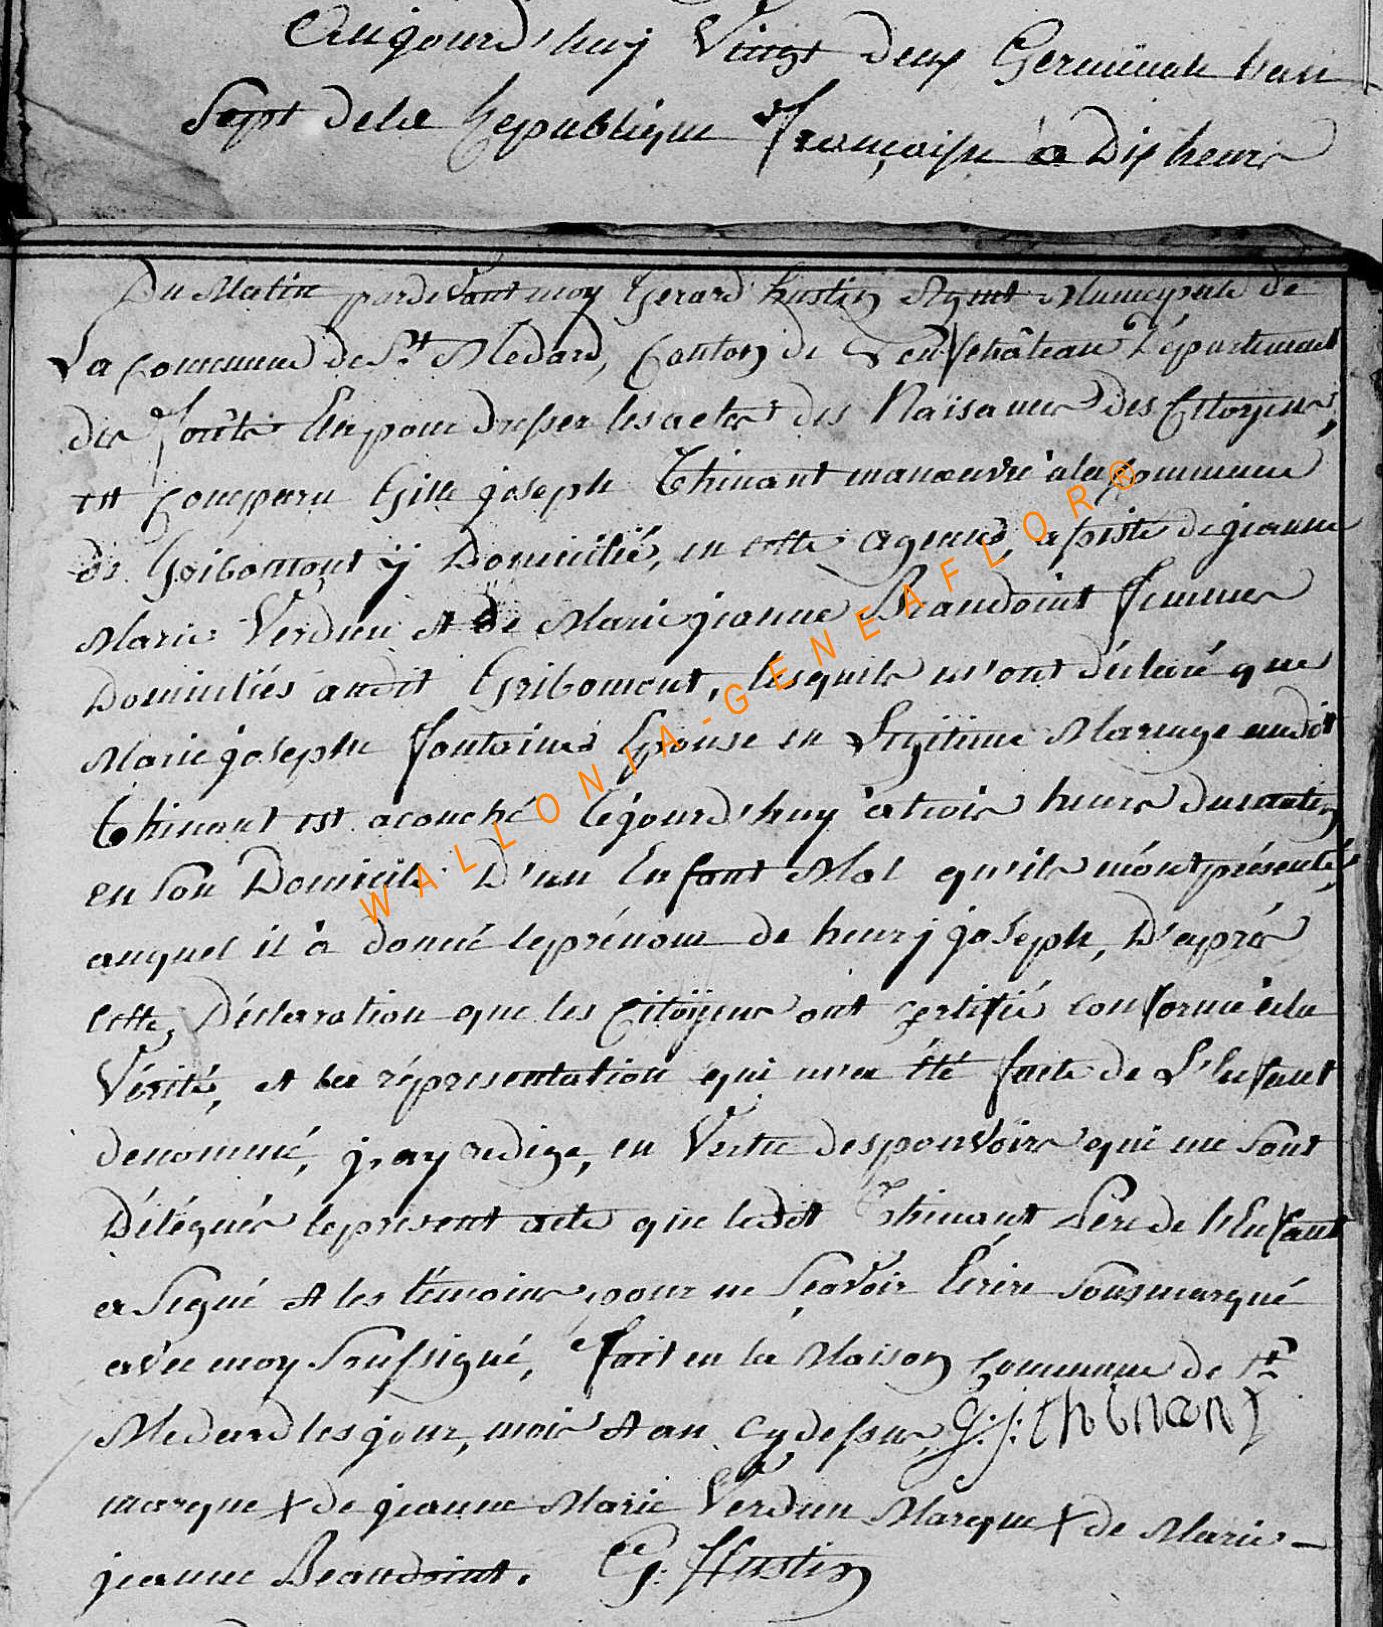 Aujourd'huy Vingt deux Germinale l'an
Sept de la Republique Française à Dix heures
Du Matin pardevant moy Gerard hustin Agent Municipale de
La Commune de St Medard, Canton de Neufchâteau Département
des Forêts Elu pour Dresser les actes des Naisances des Citoyens,
est Comparu Gille joseph Thinant manœuvre à la Commune
de Gribomont ÿ Domicilié, en cette agence, assisté de jeanne
Marie Verdun et de Marie jeanne Beaudoint femmes
Domiciliés audit Gribomont, lesquels m'ont déclaré que
Marie joseph fontaine Epouse en Légitime Mariage audit
Thinant est acouché Cejourd'huy à trois heures du matin
en son Domicile D'un Enfant Mal qu'ils m'ont présenté,
auquel il à donné le prénom de henrj joseph, D'aprés
Cette Déclaration que les Citöyens ont Certifié Conforme à la
Vérité, et la réprésentation qui m'a été faite de L'Enfant
denommé, j,ay redige, en Vertu des pouvoirs qui me sont
Délégués le present acte que ledit Thinant Pere de l'Enfant
a Signé et les témoins, pour ne Sçavoir Écrire sousmarqué
avec moy Soussigné, fait en la Maison Commune de St
Medard les jour, mois et an Cy dessus, G: j: thinant
marque + de jeanne Marie Verdun Marque + de Marie
jeanne Beaudoint. G: Hustin
WALLONIA-GENEAFLOR®